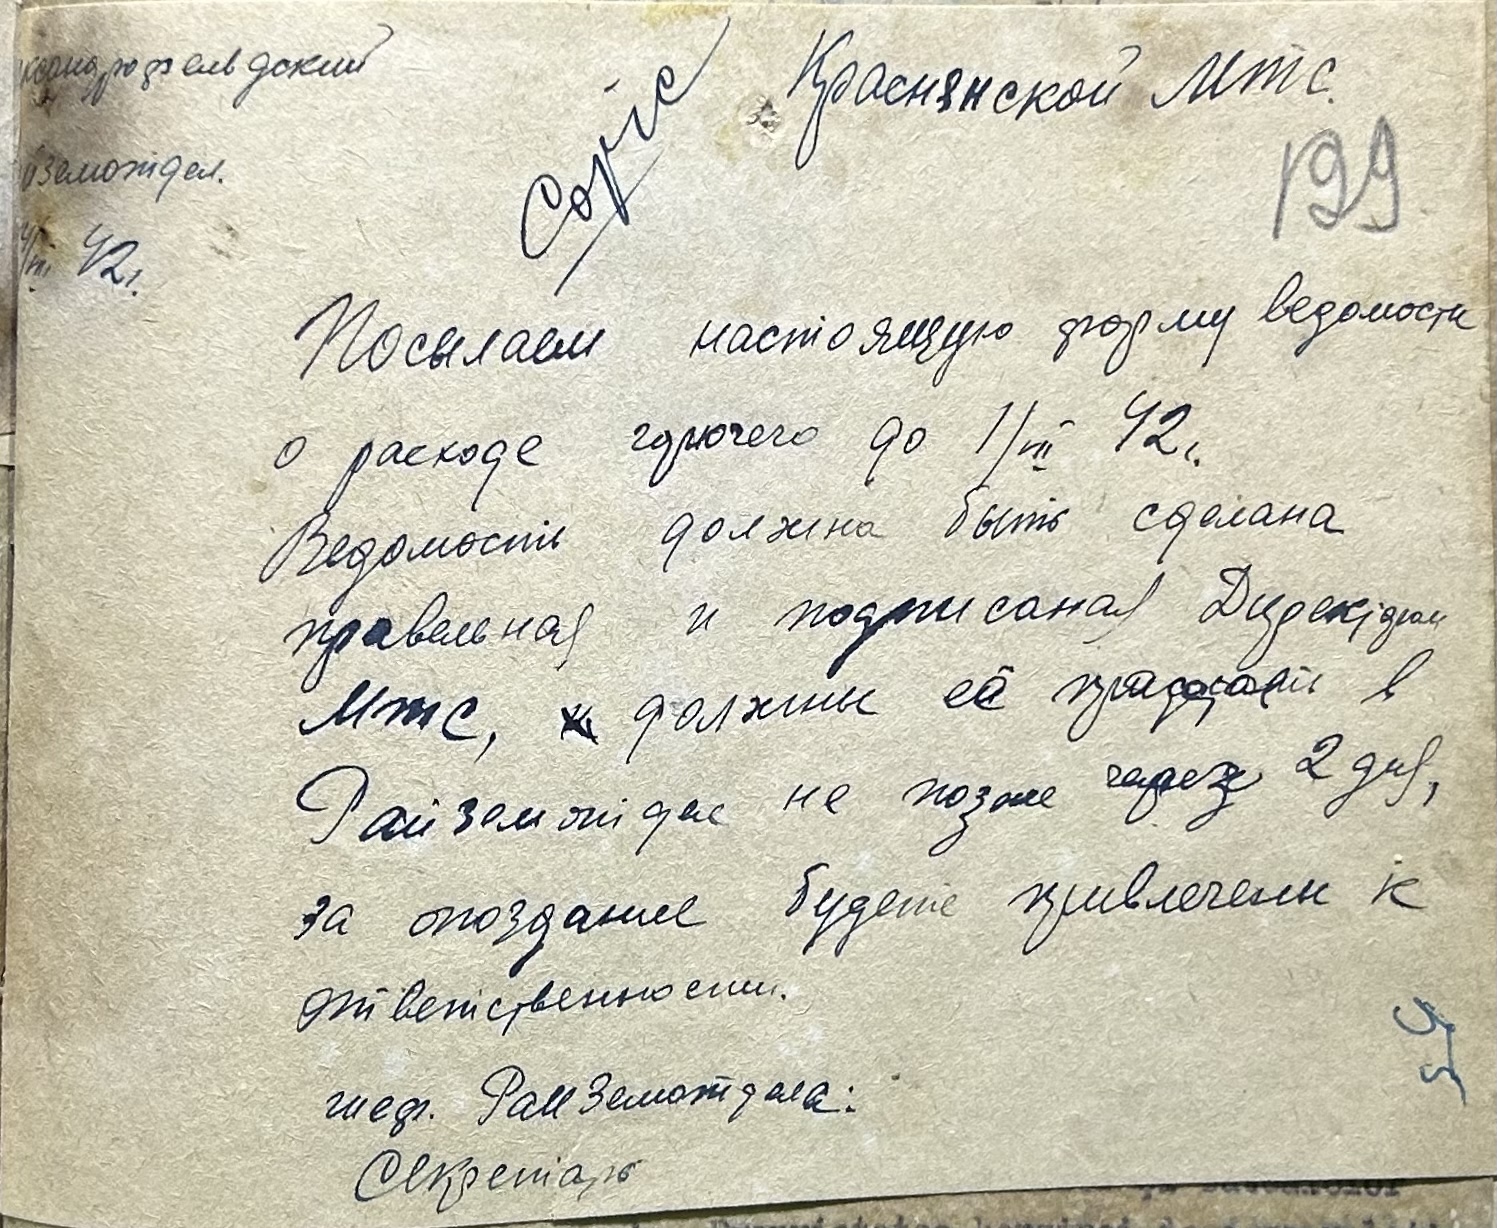 ксандрофельдский
земотдел.
/III 42г.
Краснянской МТС.
199
Посылаем настоящую форму ведомости
о расходе горючего до 1/III 42г.
Ведомость должна быть сделана
правельная и подписаная Директором
МТС, должны её в
Райземотдел не позже через 2 дня,
за опоздание будете привлечены к
ответственности.
шеф. Райземотдела:
Секретарь